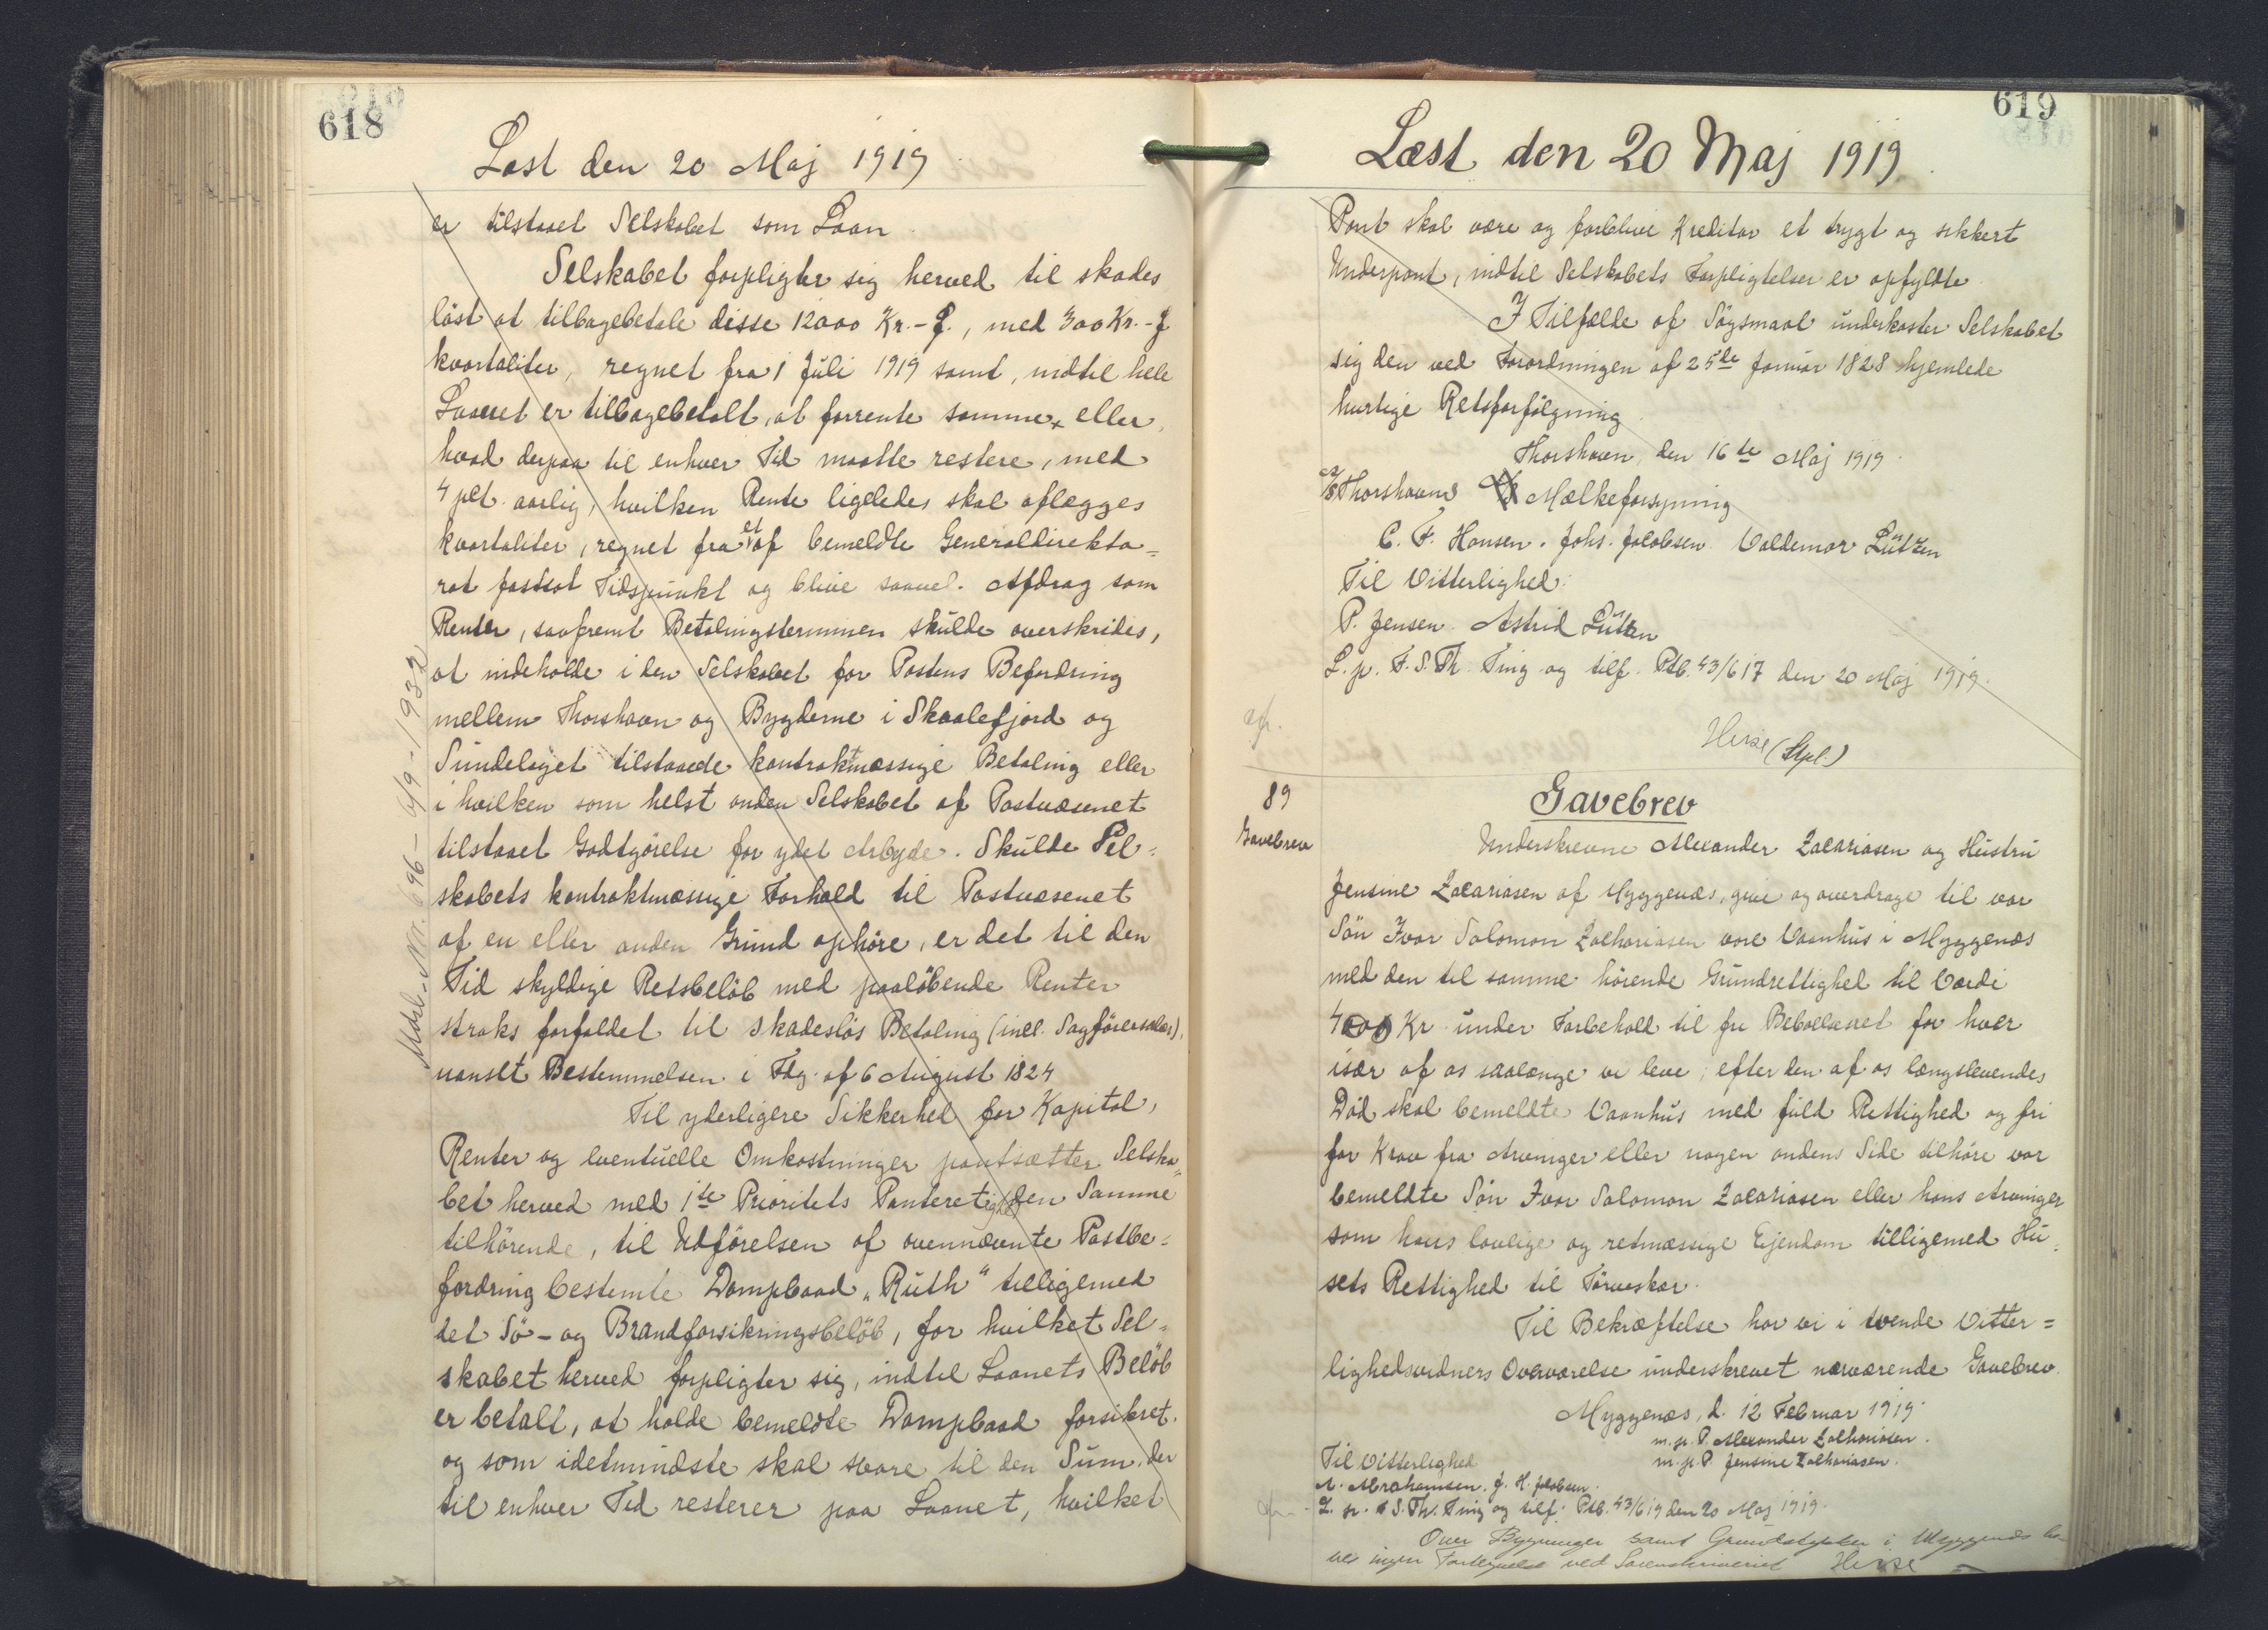 618
Læst den 20 Maj 1919.
er tilstaaet Selskabet som Laan.
Selskabet forpligter sig herved til skades
løst at tilbagebetale disse 12000 Kr. - Ø., med 300 Kr. - Ø
kvartaliter, regnet fra 1 Juli 1919 samt, indtil hele
Laanet er tilbagebetalt, at forrente samme, eller
hvad derpaa til enhver Tid maatte restere, med
4 pct. aarlig, hvilken Rente ligeledes skal aflægges
kvartaliter, regnet fra et af bemeldte Generaldirekto=
rat fastsat Tidspunkt og blive saavel Afdrag som
Renter, saafremt Betalingsterminen skulde overskrides,
at indeholde i den Selskabet for Postens Befordring
mellem Thorshavn og Bygderne i Skaalefjord og
Sundelaget tilstaaede kontraktmæssige Betaling eller
i hvilken som helst anden Selskabet af Postvæsenet
tilstaaet Godtgørelse for ydet Arbyde. Skulde Sel=
skabets kontraktmæssige Forhold til Postvæsenet
af en eller anden Grund ophøre, er det til den
Tid skyldige Restbeløb med paaløbende Renter
straks forfaldet til skadesløs Betaling (incl. Sagførersalær),
uanset Bestemmelsen i Fdg. af 6 August 1824
Til yderligere Sikkerhed for Kapital,
Renter og eventuelle Omkostninger pantsætter Selska=
bet herved med 1ste Prioritets Panteretighed den Samme
tilhørende, til Udførelsen af ovennævnte Postbe=
fordring bestemte Dampbaad "Ruth" tilligemed
det Sø- og Brandforsikringsbeløb, for hvilket Sel=
skabet herved forpligter sig, indtil Laanets Beløb
er betalt, at holde bemeldte Dampbaad forsikret
og som idetmindste skal svare til den Sum, der
til enhver Tid resterer paa Laanet, hvilket
Udsl. Nr. 696 - 6/9 - 1932
619
Læst den 20 Maj 1919.
Pant skal være og forblive Kreditor et trygt og sikkert
Underpant, indtil Selskabets Forpligtelser er opfyldte.
I Tilfælde af Søgsmaal underkaster Selskabet
sig den ved Forordningen af 25de Januar 1828 hjemlede
hurtige Retsforfølgning
Thorshavn, den 16de Maj 1919.
A/S Thorshavns Mælkeforsyning
C. F. Hansen. Johs. Jacobsen Valdemar Lützen
Til Vitterlighed:
P. Jensen Astrid Lützen
L. p. F. S. Th. Ting og tilf. Ptb. 43/617 den 20 Maj 1919.
afr.
(Stpl.)
89
Gavebrev
Gavebrev
Underskrevne Alexander Zacariasen og Hustru
Jensine Zacariasen af Myggenæs, give og overdrage til vor
Søn Ivar Salomon Zachariasen vore Vaanhus i Myggenæs
med den til samme hørende Grundrettighed til Værdi
4000 Kr. under Forbehold til fri Beboelseret for hver
især af os saalænge vi leve; efter den af os længslevendes
Død skal bemeldte Vaanhus med fuld Rettighed og fri
for Krav fra Arvinger eller nogen andens Side tilhøre vor
bemeldte Søn Ivar Salomon Zacariasen eller hans Arvinger
som hans lovlige og retmæssige Ejendom tilligemed Hu=
sets Rettighed til Tørveskær.
Til Bekræftelse har vi i tvende Vitter=
lighedsvidners Overværelse underskrevet nærværende Gavebrev.
Myggenæs, d. 12 Februar 1919.
m. p. P. Alexander Zachariasen.
m. p. P. Jensine Zachariasen.
Til Vitterlighed
A. Abrahamsen. J. H. Jacobsen.
L. p. F. S. Th. Ting og tilf. Ptb. 43/619 den 20 Maj 1919.
Over Bygninger samt Grundstykker i Myggenæs ha-
ves ingen Fortegnelse ved Sorenskriveriet